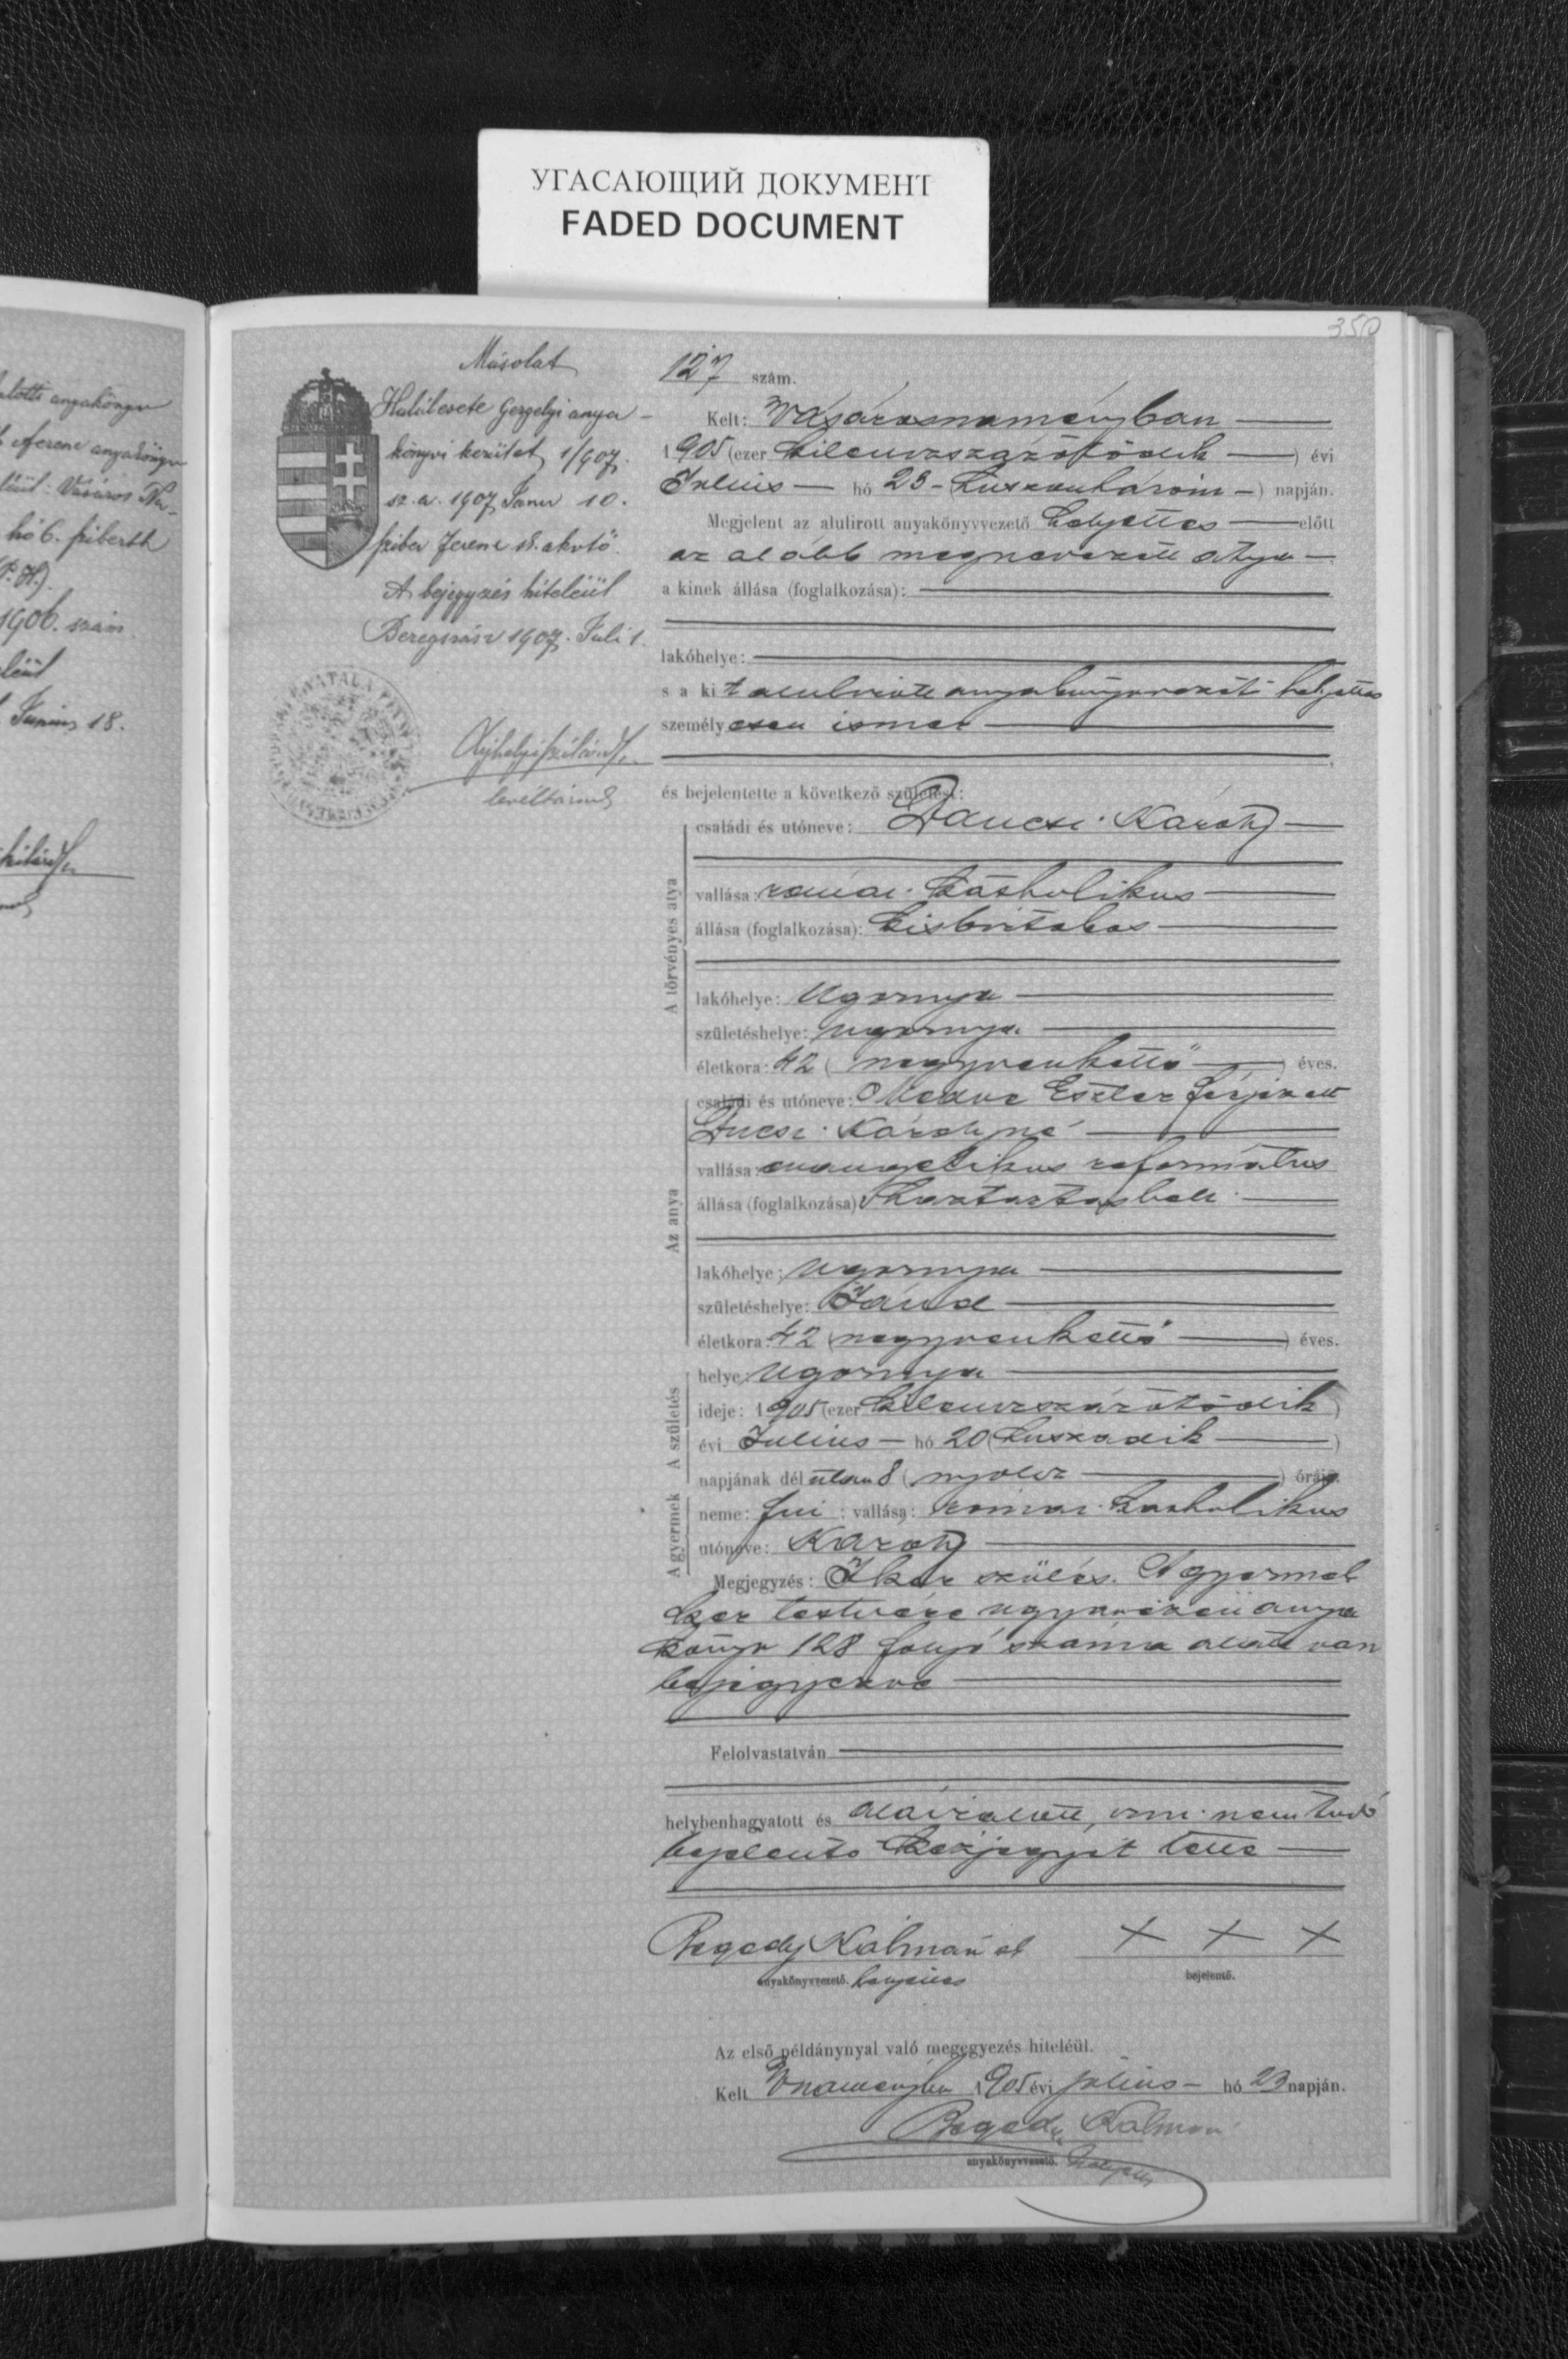 УГАСАЮЩИЙ ДОКУМЕНТ
FADED DOCUMENT
350
Másolat
Halálesete Gergelyi anya-
könyvi kerület, 1/907.
sz. a. 1907 Janu 10.
Ferenc
A bejegyzés hiteléül
Beregszász 1907. Juli 1.
levéltárnok
anyakönyv
Ferenc anyakönyv
Vásáros Na-
hó 6.
(P. H.)
1906. szám
Junius 18.
127 szám.
Kelt: Vásárosnaményban
1905 (ezer kilenczszázötödik ) évi
Julius hó 23 (huszonhárom) napján.
Megjelent az alulirott anyakönyvvezető helyettes előtt
az alább megnevezett atya
a kinek állása (foglalkozása):
lakóhelye:
s a kit alulirott anyakönyvvezető helyettes
személyesen ismer
és bejelentette a következő születést:
A törvényes atya
családi és utóneve: Dancsi Károly
vallása: római katholikus
állása (foglalkozása): kisbirtokos
lakóhelye: Ugornya
születéshelye: Ugornya
életkora: 42 (negyvenkettő) éves.
Az anya
családi és utóneve: Medve Eszter férjezett
Dncsi Károlyné
vallása: evangelikus református
állása (foglalkozása) háztartásbeli
lakóhelye: Ugornya
születéshelye: Jánd
életkora: 42 (negyvenkettő) éves.
A születés
helye: Ugornya
ideje: 1905 (ezer kilenczszázötödik)
évi Julius hó 20 (huszadik)
napjának délután 8 (nyolcz) órája.
A gyermek
neme: fiu ; vallása: római katholikus
utóneve: Károly
Megjegyzés: Iker szülés. A gyermek
iker testvére ugyanezen anya
könyv 128 folyó száma alatt van
bejegyezve
Felolvastatván
helybenhagyatott és aláiratott, irni nem tudó
bejelentő kézjegyét tette
Regedy Kálmán
+ + +
anyakönyvvezető. helyettes
bejelentő.
Az első példánynyal való megegyezés hiteléül.
Kelt Vnaményban 1905 évi julius hó 23 napján.
Regedy Kálmán
anyakönyvvezető. helyettes